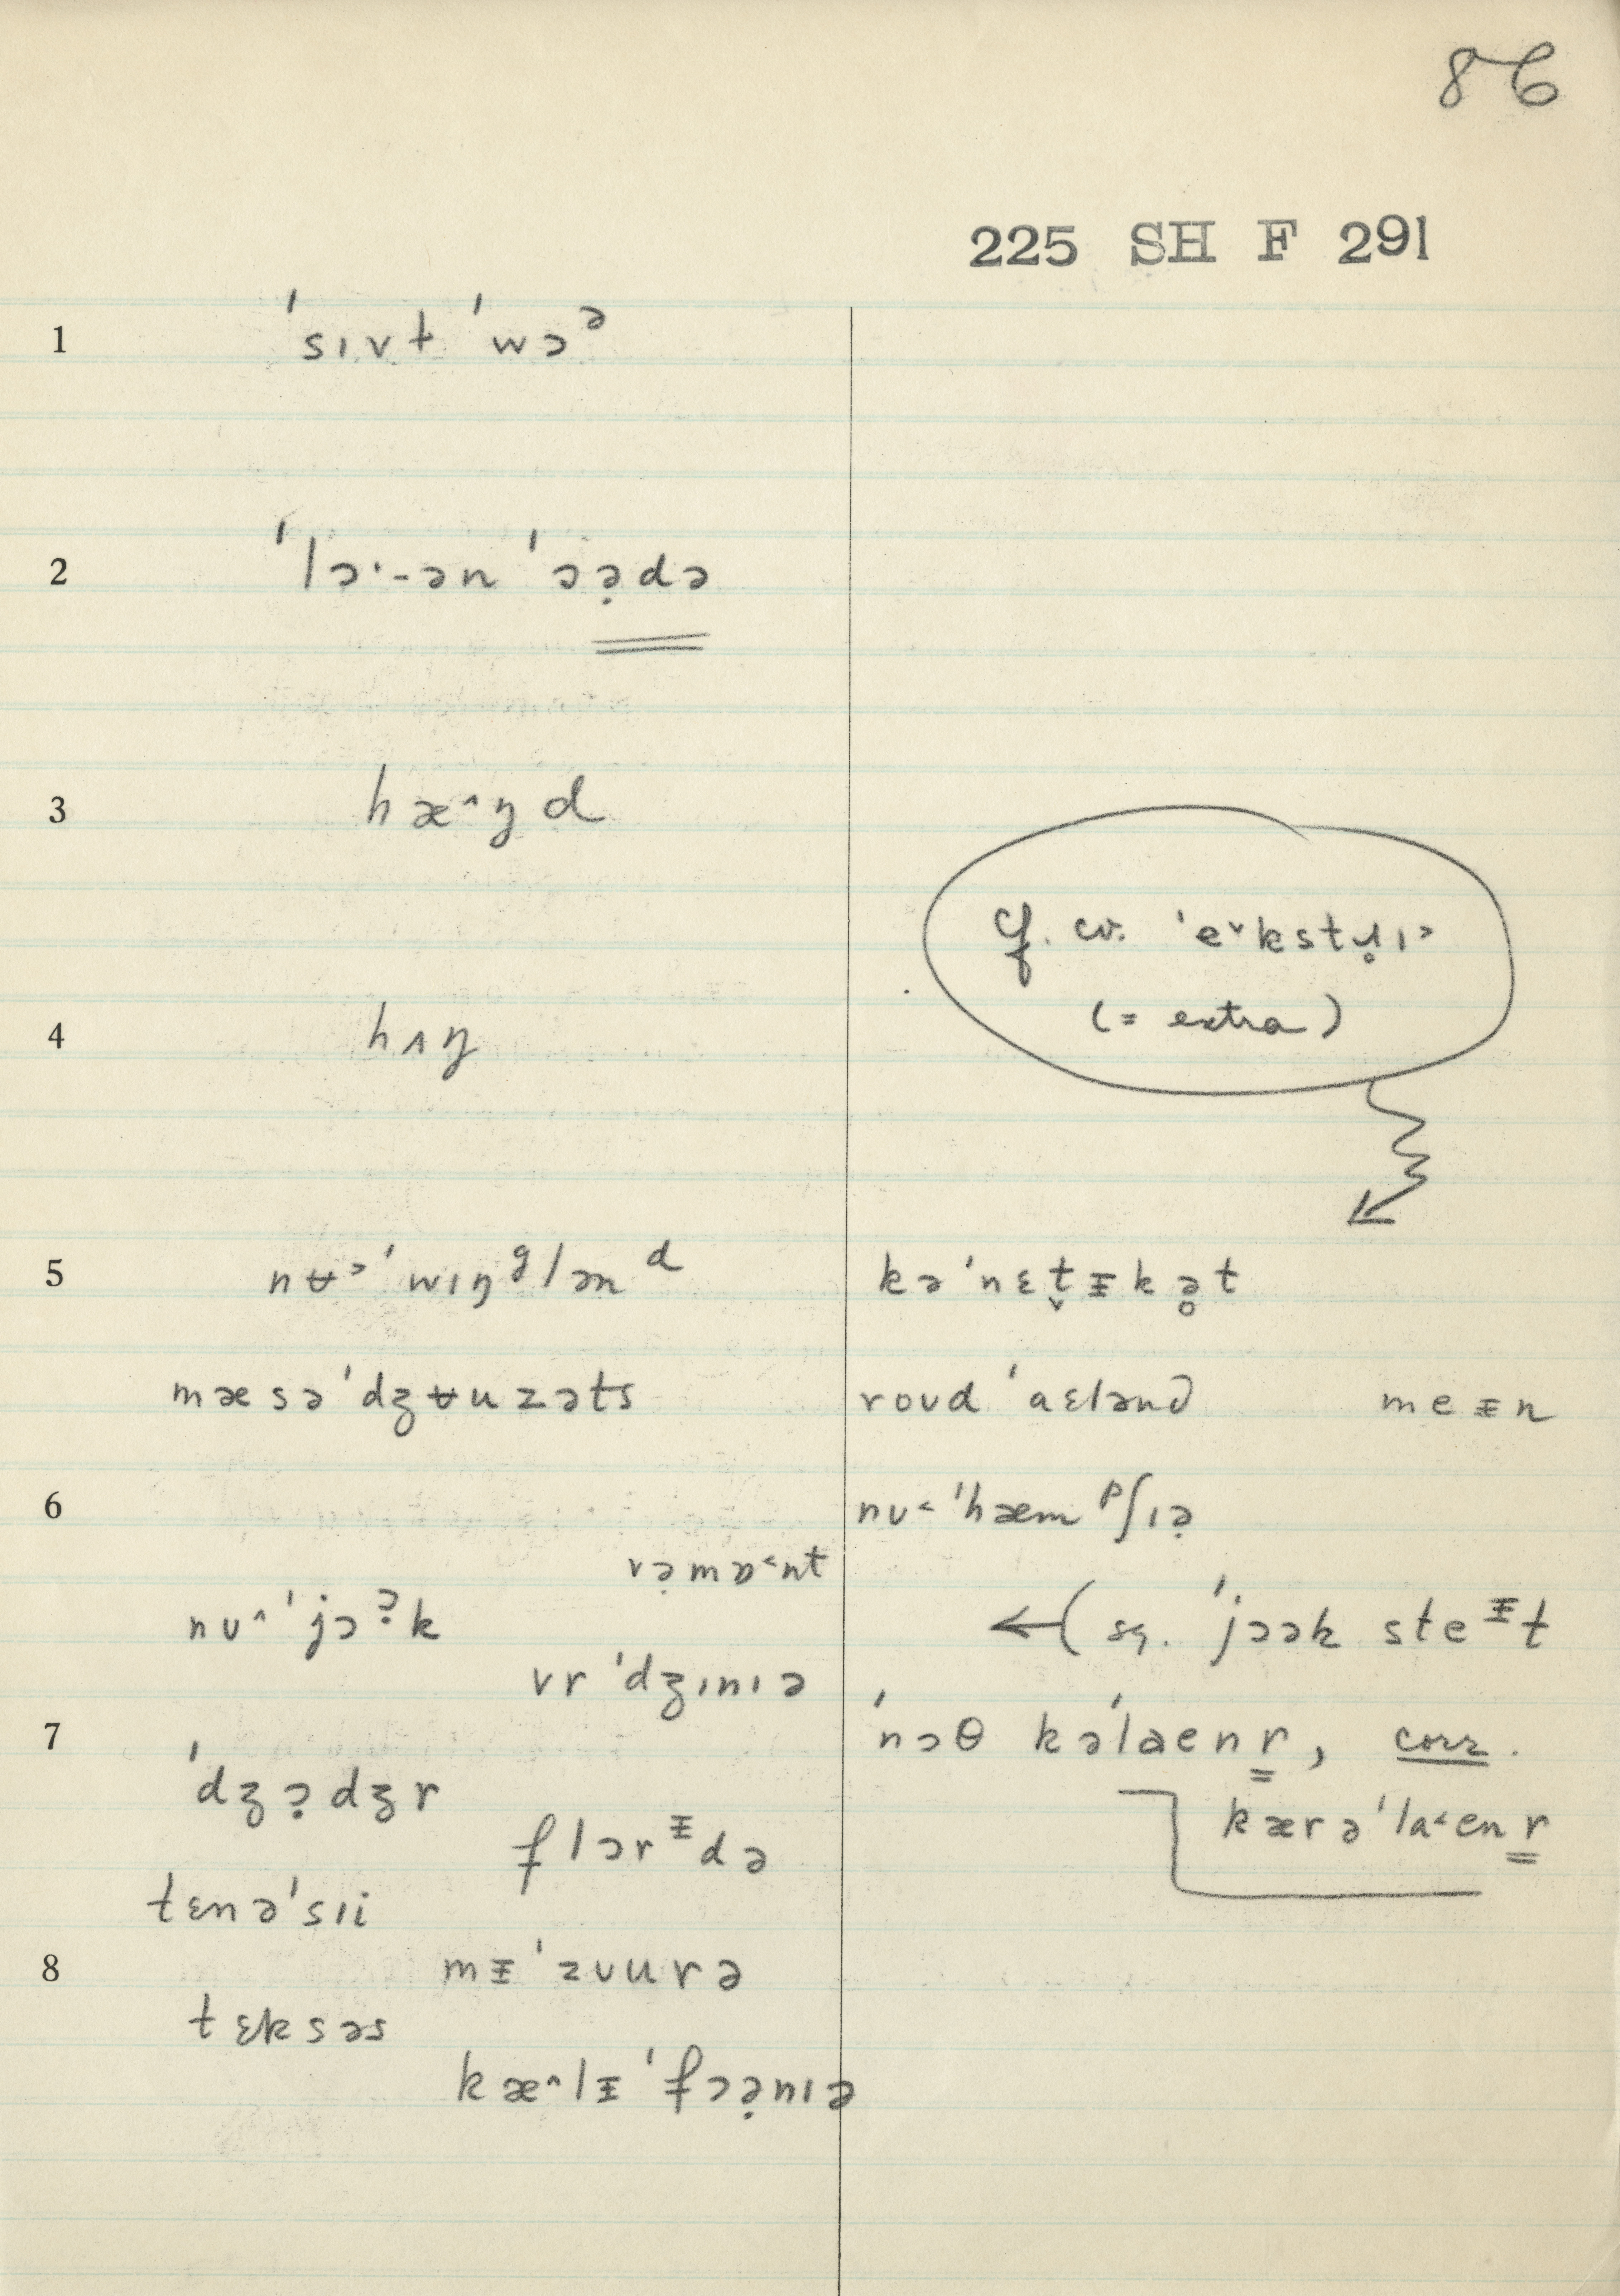 86
225 SH F 291
1 ˈsɪvt ˈwɔᵊ
2 ˈlɔ·-ən ˈɔə̣də
3 hæ^ŋd
4 hʌŋ
cf. cv. ˈe˅kstɹ̥ɪ˃
(= extra)
5 nʉ˃ˈwɪŋᵍlənᵈ kəˈnɛt̬ᵻkə̥t
mæsəˈdʒʉuzəts roʊd ˈaɛlənd meᵻn
6 nʊ˂ˈhæmᵖʃɪə̣
və̣mɒ˂nt
nʊ^ˈjɔᵊ̣k ←( sq. ˈjɔək steᵻt
vrˈdʒɪnɪə
7 ˈnɔθ kəˈlaenr̳, corr.
ˈdʒɔ̣dʒr
kærəˈla˂enr̳
flɔrᵻdə
tɛnəˈsɪi
8 mᵻˈzʊurə
tɛksəs
kæ^lᵻˈfɔə̣nɪə